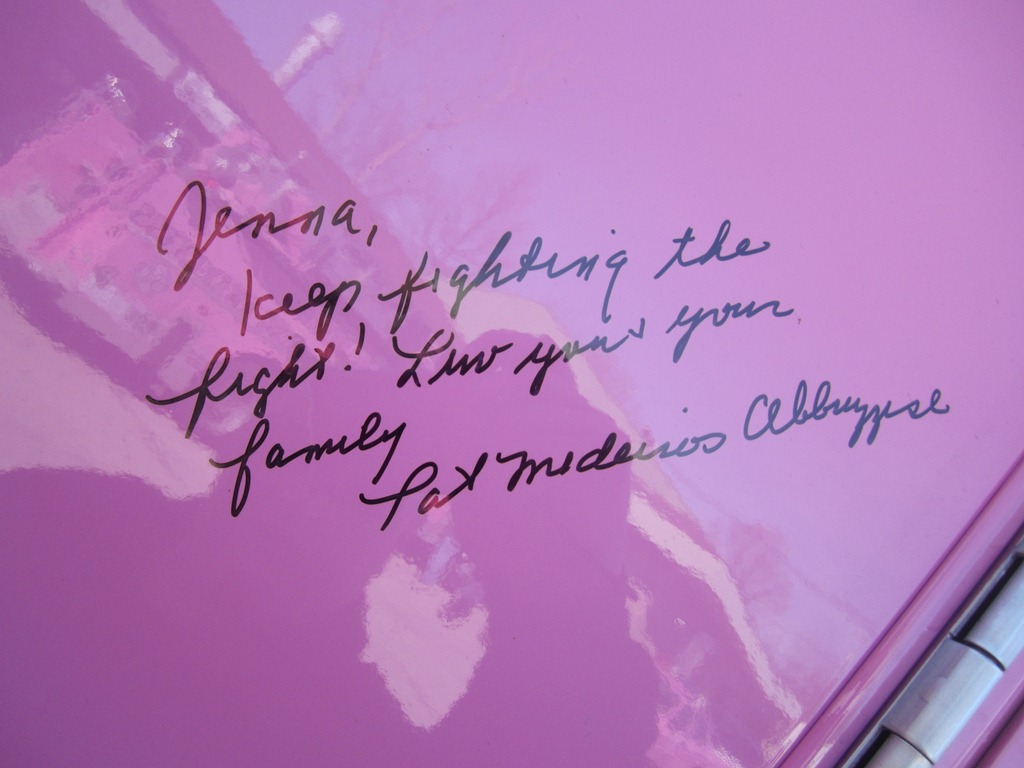 Jenna,
keep fighting the
fight! Luv you + your
family
Pat Medeiros Abbruzzese